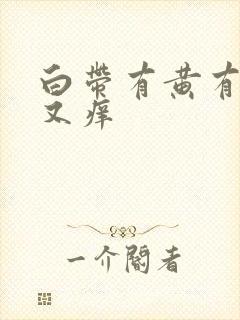 白带有黄有
又痒
一介阅者